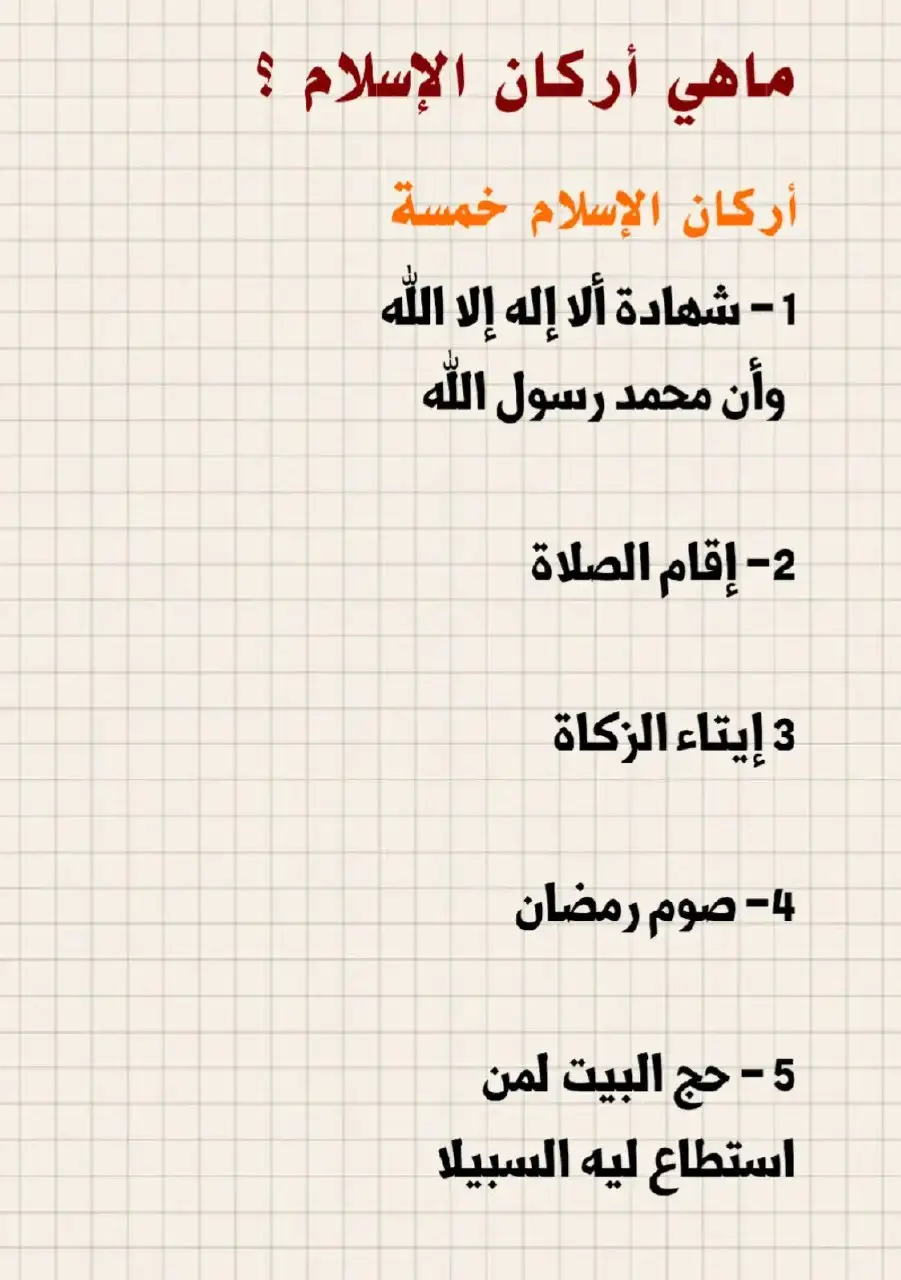 ماهي أركان الإسلام ؟
أركان الإسلام خمسة
1 - شهادة ألا إله إلا الله
وأن محمد رسول الله
2- إقام الصلاة
3 إيتاء الزكاة
4- صوم رمضان
5 - حج البيت لمن
استطاع ليه السبيلا